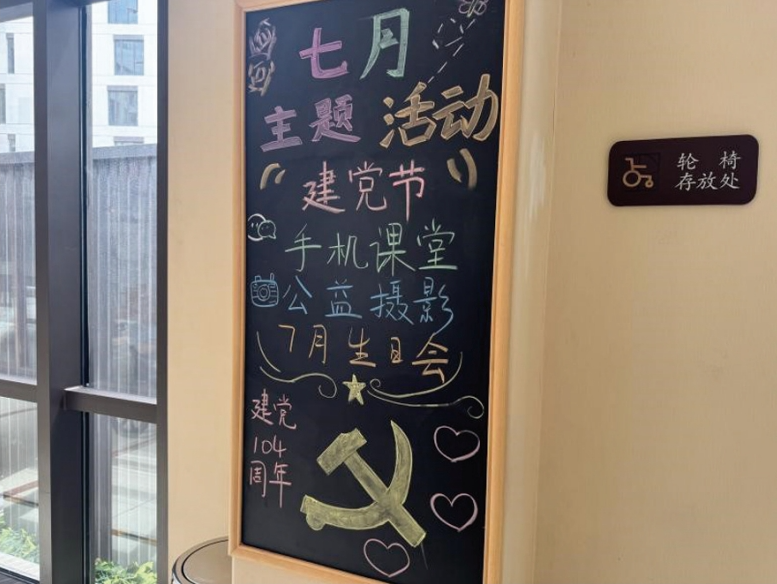 七月
主题 活动
"建党节"
手机课堂
公益摄影
7月生日会
建党
104
周年
轮 椅
存放处